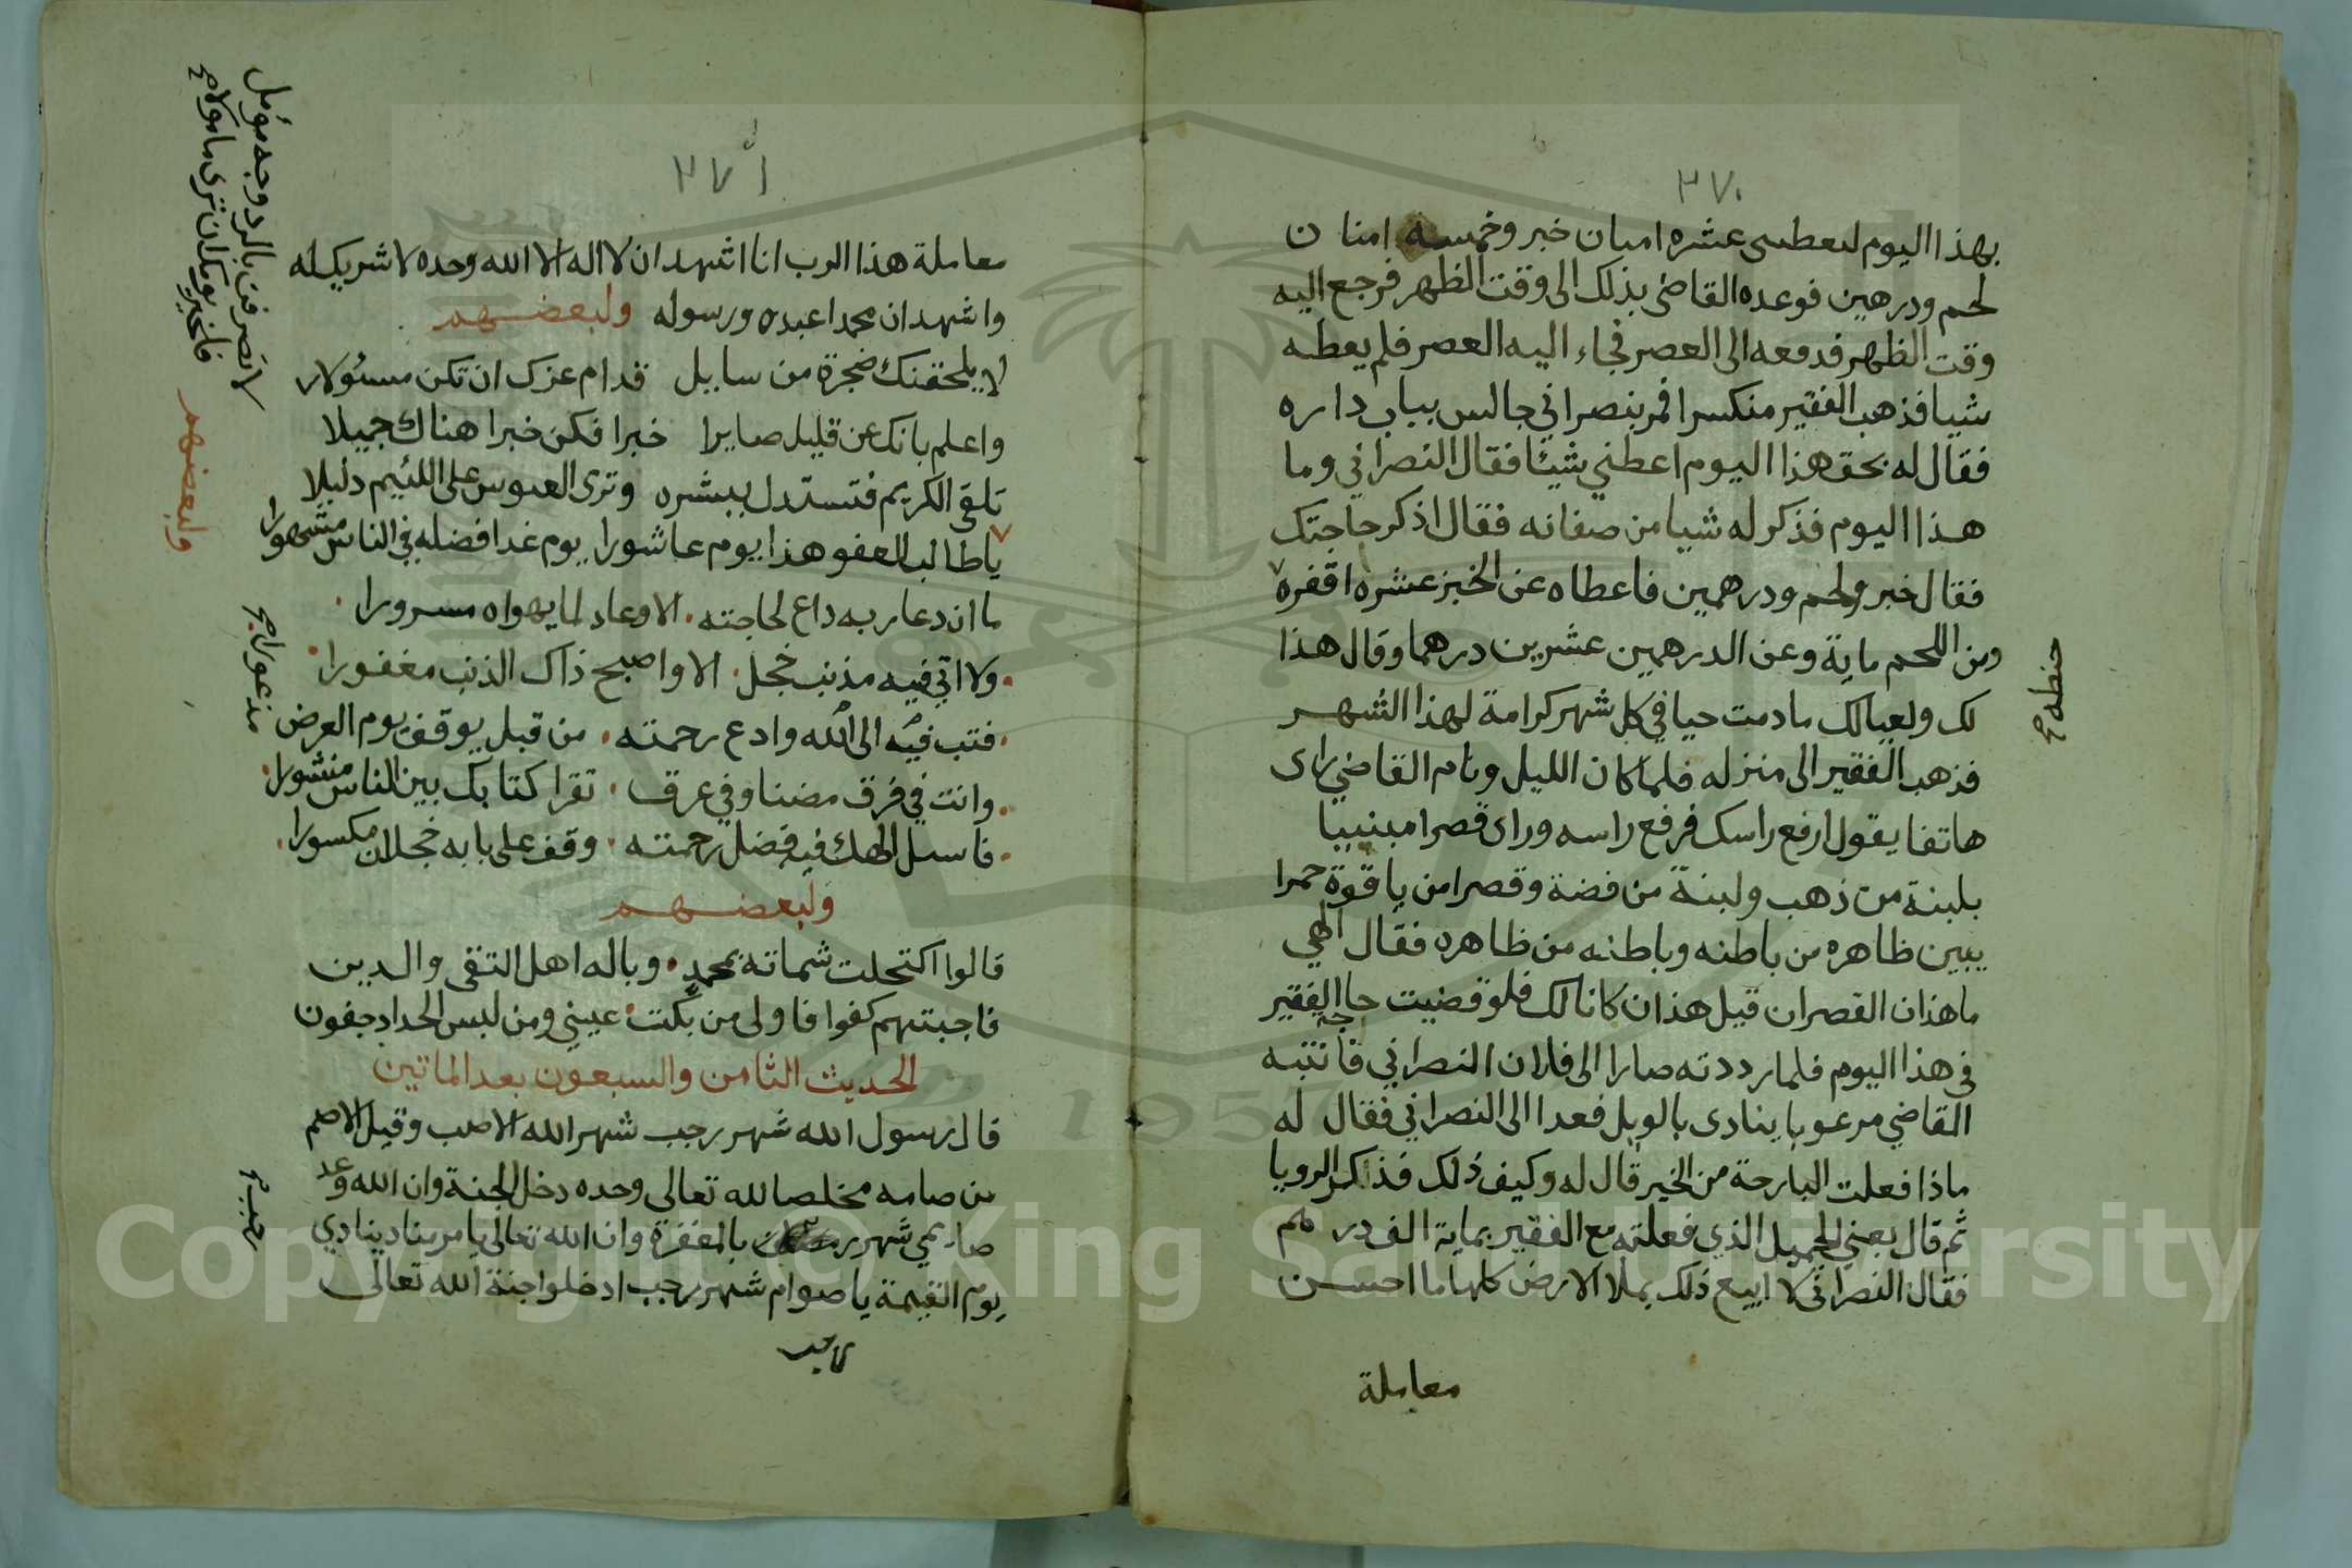 ٢٧٠
بهذا اليوم لتعطنى عشره امنان خبز وخمسة امنان
لحم ودرهين فوعده القاضى بذلك الى وقت الظهر فرجع اليه
وقت الظهر فدفعه الى العصر فجاء اليه العصر فلم يعطه
شيا فذهب الفقير منكسرا فمر بنصراني جالس بباب داره
فقال له بحق هذا اليوم اعطني شيئا فقال النصراني وما
هذا اليوم فذكر له شيا من صفاته فقال اذكر حاجتك
فقال خبز ولحم ودرهمين فاعطاه عن الخبز عشره اقفزه
حنطه صح
ومن اللحم ماية وعن الدرهمين عشرين درهما وقال هذا
لك ولعيالك مادمت حيا في كل شهر كرامة لهذا الشهر
فذهب الفقير الى منزله فلما كان الليل ونام القاضي راى
هاتفا يقول ارفع راسك فرفع راسه وراى قصرا مبنيا
بلبنة من ذهب ولبنة من فضة وقصرا من ياقوة حمرا
يبين ظاهره من باطنه وباطنه من ظاهره فقال الهي
ماهذان القصران قيل هذان كانا لك فلو قضيت حاجة الفقير
في هذا اليوم فلما رددته صارا الى فلان النصراني فانتبه
القاضي مرعوبا ينادى بالويل فعدا الى النصراني فقال له
ماذا فعلت البارحة من الخير قال له وكيف ذلك فذكر الرويا
ثم قال بعني الجميل الذي فعلته مع الفقير بماية الف درهم
فقال النصراني لا ابيع ذلك بملا الارض كلها ما احسن
معاملة
٢٧١
معاملة هذا الرب انا اشهد ان لا اله الا الله وحده لا شريك له
واشهد ان محمدا عبده ورسوله ولبعضهم
لا يلحقنك ضجرة من سايل قدام عزك ان تكن مسئولا
لا تصرفن بالرد وجه مؤمل
فلخير يومك ان ترى مامولا صح
واعلم بانك عن قليل صايرا خبرا فكن خبرا هناك جميلا
تلقى الكريم فتستدل ببشره وترى العبوس على اللئيم دليلا
ولبعضهم
يا طالب العفو هذا يوم عاشورا يوم غدا فضله في الناس مشهورا
ما ان دعا ربه داع لحاجته الا وعاد لما يهواه مسرورا
ولا اتى فيه مذنب خجل الا واصبح ذاك الذنب مغفورا
فتب فيه الى الله وادع رحمته من قبل يوقف يوم العرض
مذعورا صح
وانت في فرق مضنا وفي عرق تقرا كتابك بين الناس منشورا
فاسئل الهك فيه فضل رحمته وقف على بابه خجلان مكسورا
ولبعضهم
قالوا اكتحلت شماتة بمحمد وباله اهل التقى والدين
فاجبتهم كفوا فاولى من بكت عيني ومن لبس الحداد جفون
الحديث الثامن والسبعون بعد الماتين
قال رسول الله شهر رجب شهر الله الاصب وقيل الاصم
من صامه مخلصا لله تعالى وحده دخل الجنة وان الله وعد
صايمي شهر رجب بالمغفرة وان الله تعالى يامر مناد ينادي
يوم القيمة يا صوام شهر رجب ادخلوا جنة الله تعالى
Copyright © King Saud University
1957